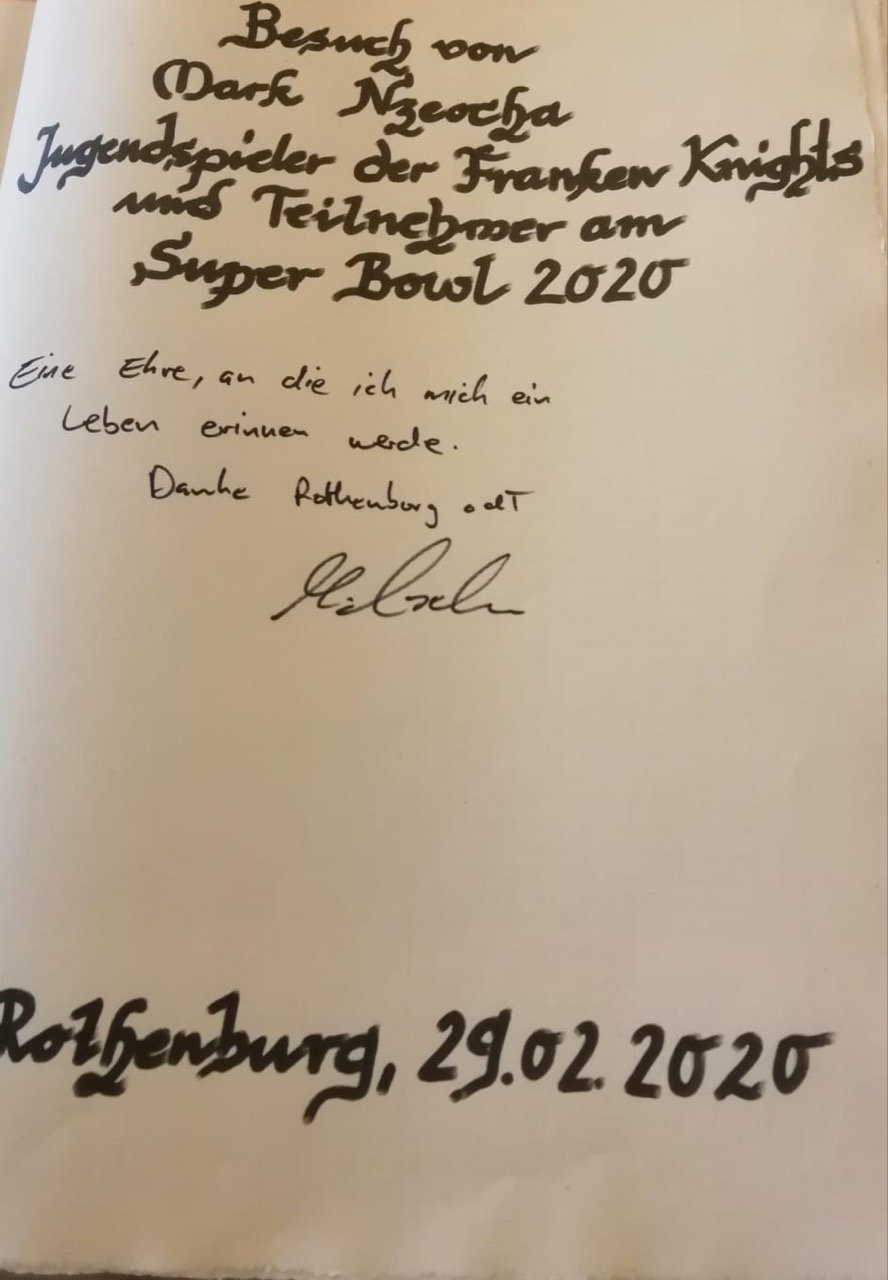 Besuch von
Mark Nzeocha
Jugendspieler der Franken Knights
und Teilnehmer am
Super Bowl 2020
Eine Ehre, an die ich mich ein
Leben erinnen werde.
Danke Rothenburg odT
Rothenburg, 29.02.2020